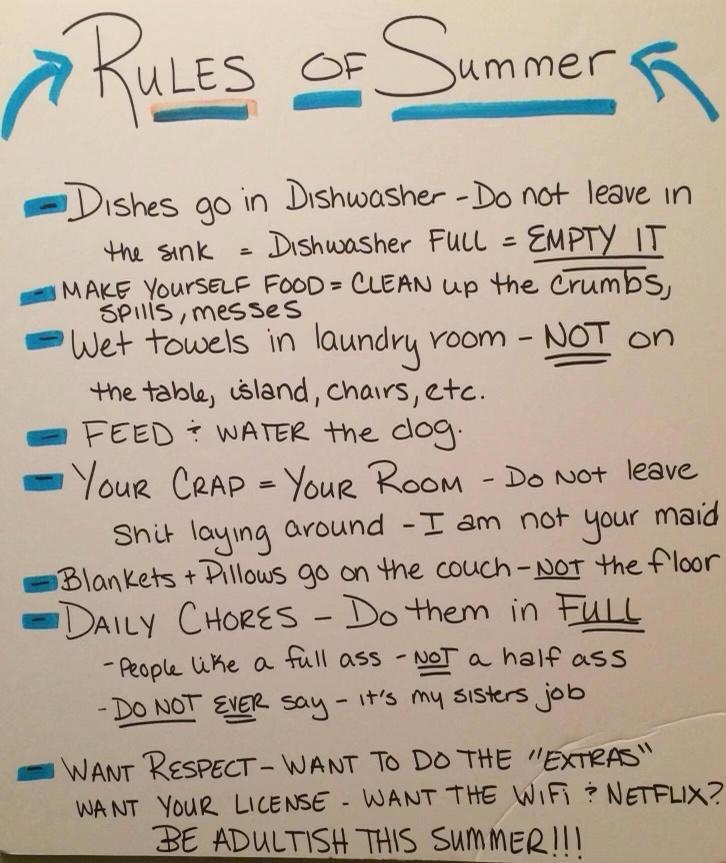 RULES OF Summer
- Dishes go in Dishwasher - Do not leave in
the sink = Dishwasher FULL = EMPTY IT
- MAKE YourSELF FOOD = CLEAN up the Crumbs,
spills, messes
- Wet towels in laundry room - NOT on
the table, island, chairs, etc.
- FEED & WATER the dog.
- YOUR CRAP = YOUR ROOM - DO NOT leave
Shit laying around - I am not your maid
- Blankets + Pillows go on the couch - NOT the floor
- DAILY CHORES - Do them in FULL
- People like a full ass - NOT a half ass
- DO NOT EVER say - it's my sisters job
- WANT RESPECT - WANT TO DO THE "EXTRAS"
WANT YOUR LICENSE - WANT THE WiFi & NETFLIX?
BE ADULTISH THIS SUMMER!!!